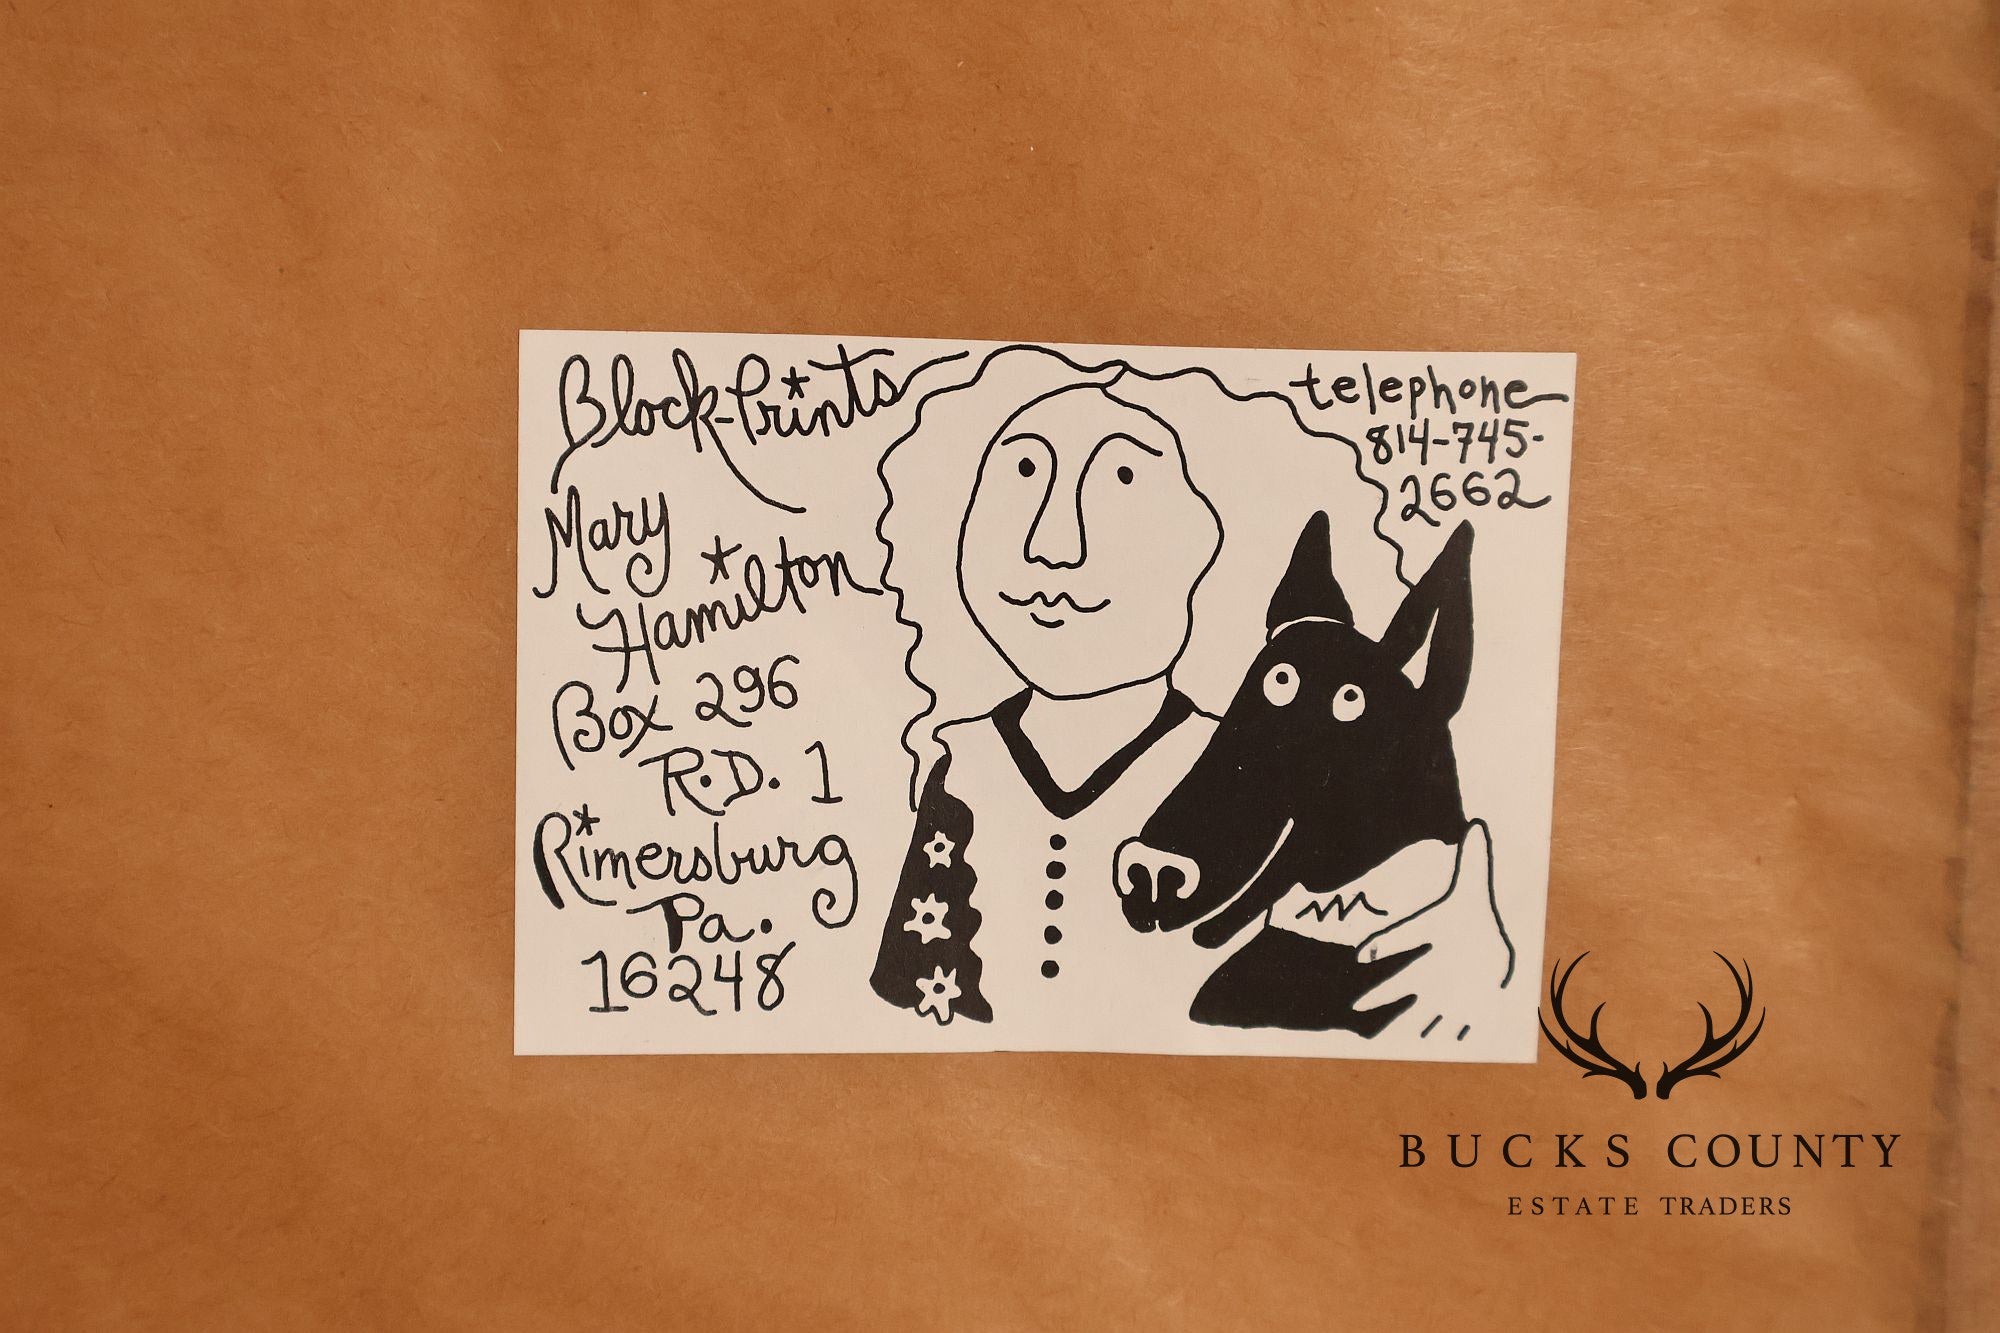 Block-Prints
Mary
Hamilton
Box 296
R.D. 1
Rimersburg
Pa.
16248
telephone
814-745-
2662
BUCKS COUNTY
ESTATE TRADERS